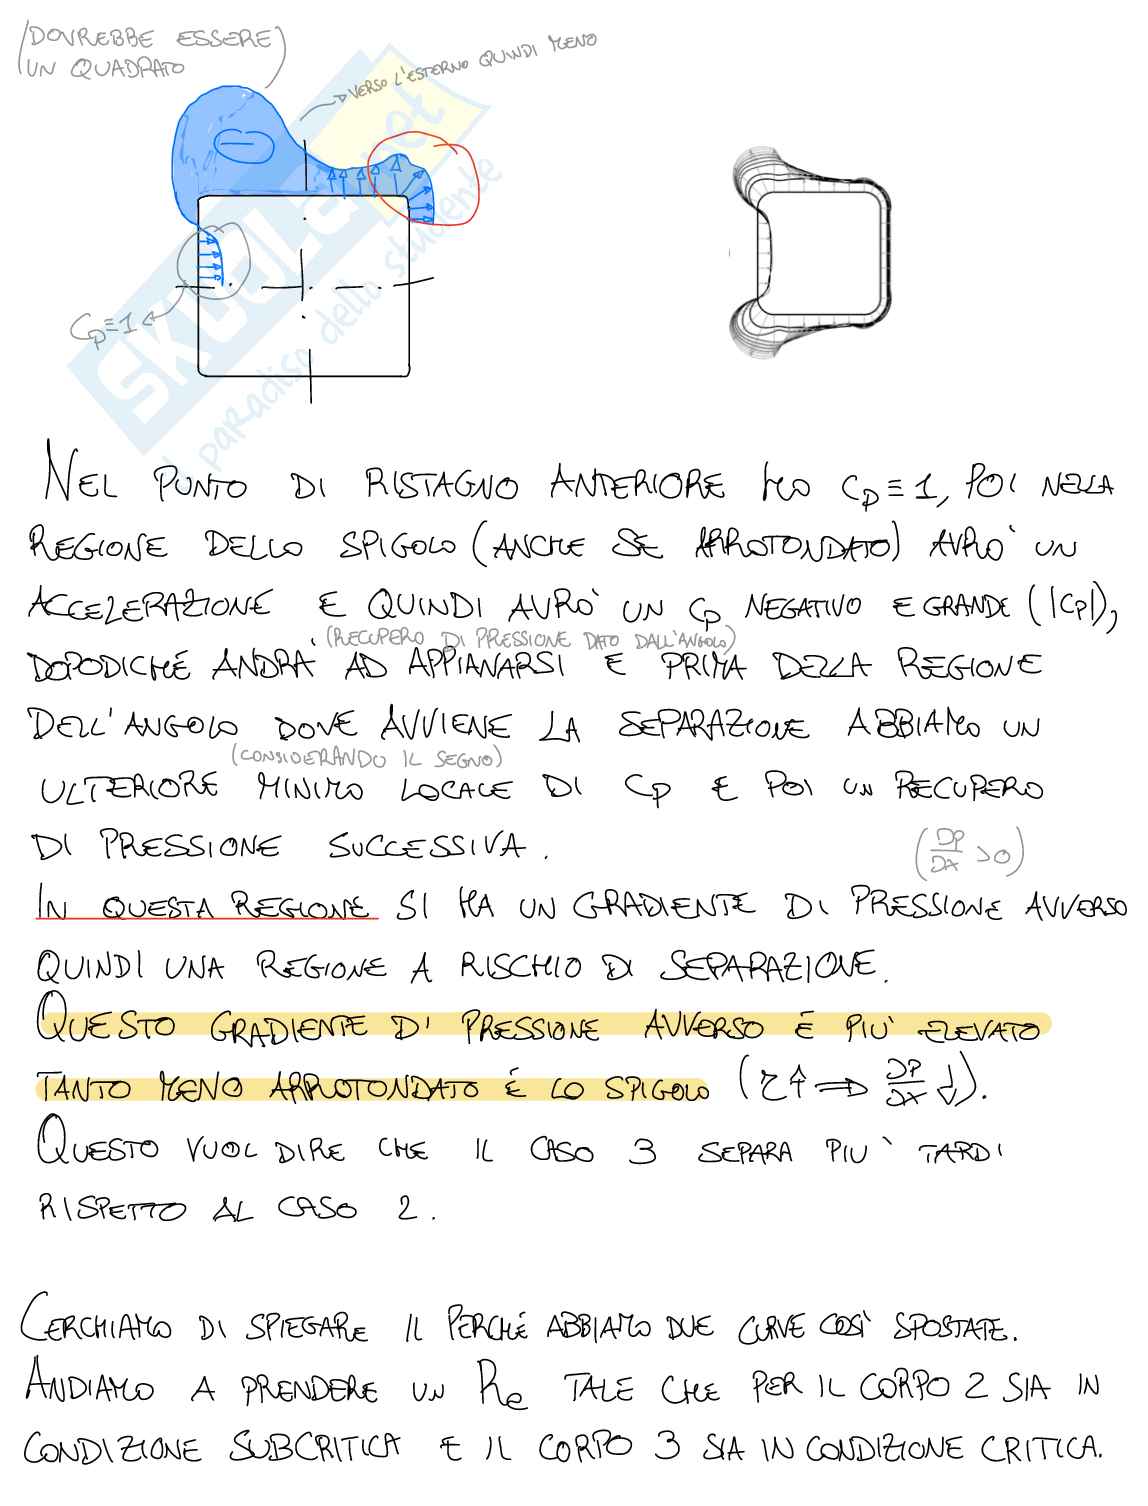 (DOVREBBE ESSERE)
(UN QUADRATO
VERSO L'ESTERNO QUINDI MENO
−
Cp≡1
SKUOLA.net
il paradiso dello studente
NEL PUNTO DI RISTAGNO ANTERIORE HO Cp≡1, POI NELLA
REGIONE DELLO SPIGOLO (ANCHE SE ARROTONDATO) AVRO' UN
ACCELERAZIONE E QUINDI AVRO' UN Cp NEGATIVO E GRANDE (|Cp|),
(RECUPERO DI PRESSIONE DATO DALL'ANGOLO)
DOPODICHÉ ANDRA' AD APPIANARSI E PRIMA DELLA REGIONE
DELL'ANGOLO DOVE AVVIENE LA SEPARAZIONE ABBIAMO UN
(CONSIDERANDO IL SEGNO)
ULTERIORE MINIMO LOCALE DI Cp E POI UN RECUPERO
DI PRESSIONE SUCCESSIVA.
(DP/DX >0)
IN QUESTA REGIONE SI HA UN GRADIENTE DI PRESSIONE AVVERSO
QUINDI UNA REGIONE A RISCHIO DI SEPARAZIONE.
QUESTO GRADIENTE DI PRESSIONE AVVERSO É PIU' ELEVATO
TANTO MENO ARROTONDATO É LO SPIGOLO (r↑ ⇒ DP/DX ↓).
QUESTO VUOL DIRE CHE IL CASO 3 SEPARA PIU' TARDI
RISPETTO AL CASO 2.
CERCHIAMO DI SPIEGARE IL PERCHÉ ABBIAMO DUE CURVE COSÌ SPOSTATE.
ANDIAMO A PRENDERE UN Re TALE CHE PER IL CORPO 2 SIA IN
CONDIZIONE SUBCRITICA E IL CORPO 3 SIA IN CONDIZIONE CRITICA.